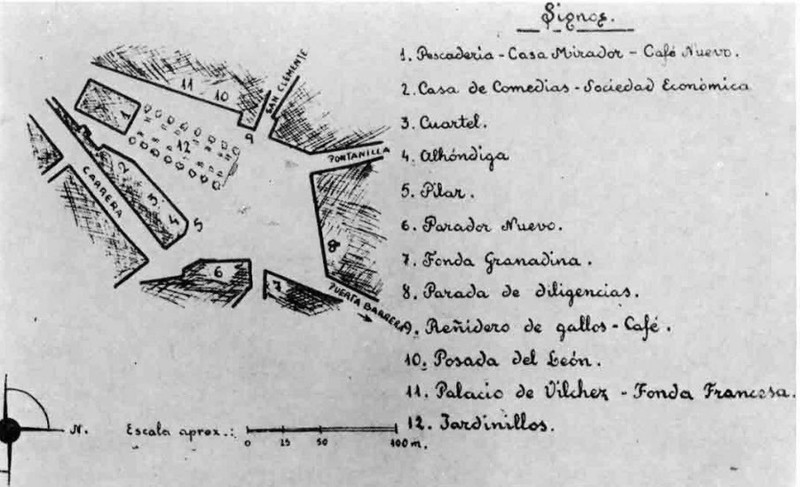 Signos.
1. Pescaderia - Casa Mirador - Café Nuevo.
2. Casa de Comedias - Sociedad Económica
3. Cuartel.
4. Alhóndiga
5. Pilar.
6. Parador Nuevo.
7. Fonda Granadina.
8. Parada de diligencias.
9. Reñidero de gallos - Café.
10. Posada del León.
11. Palacio de Vilchez - Fonda Francesa.
12. Jardinillos.
11
10
SAN CLEMENTE
1
9
12
PONTANILLA
2
CARRERA
3
4
5
8
6
7
PUERTA BARRERA
N.
Escala aprox.:
0 15 50 100 m.